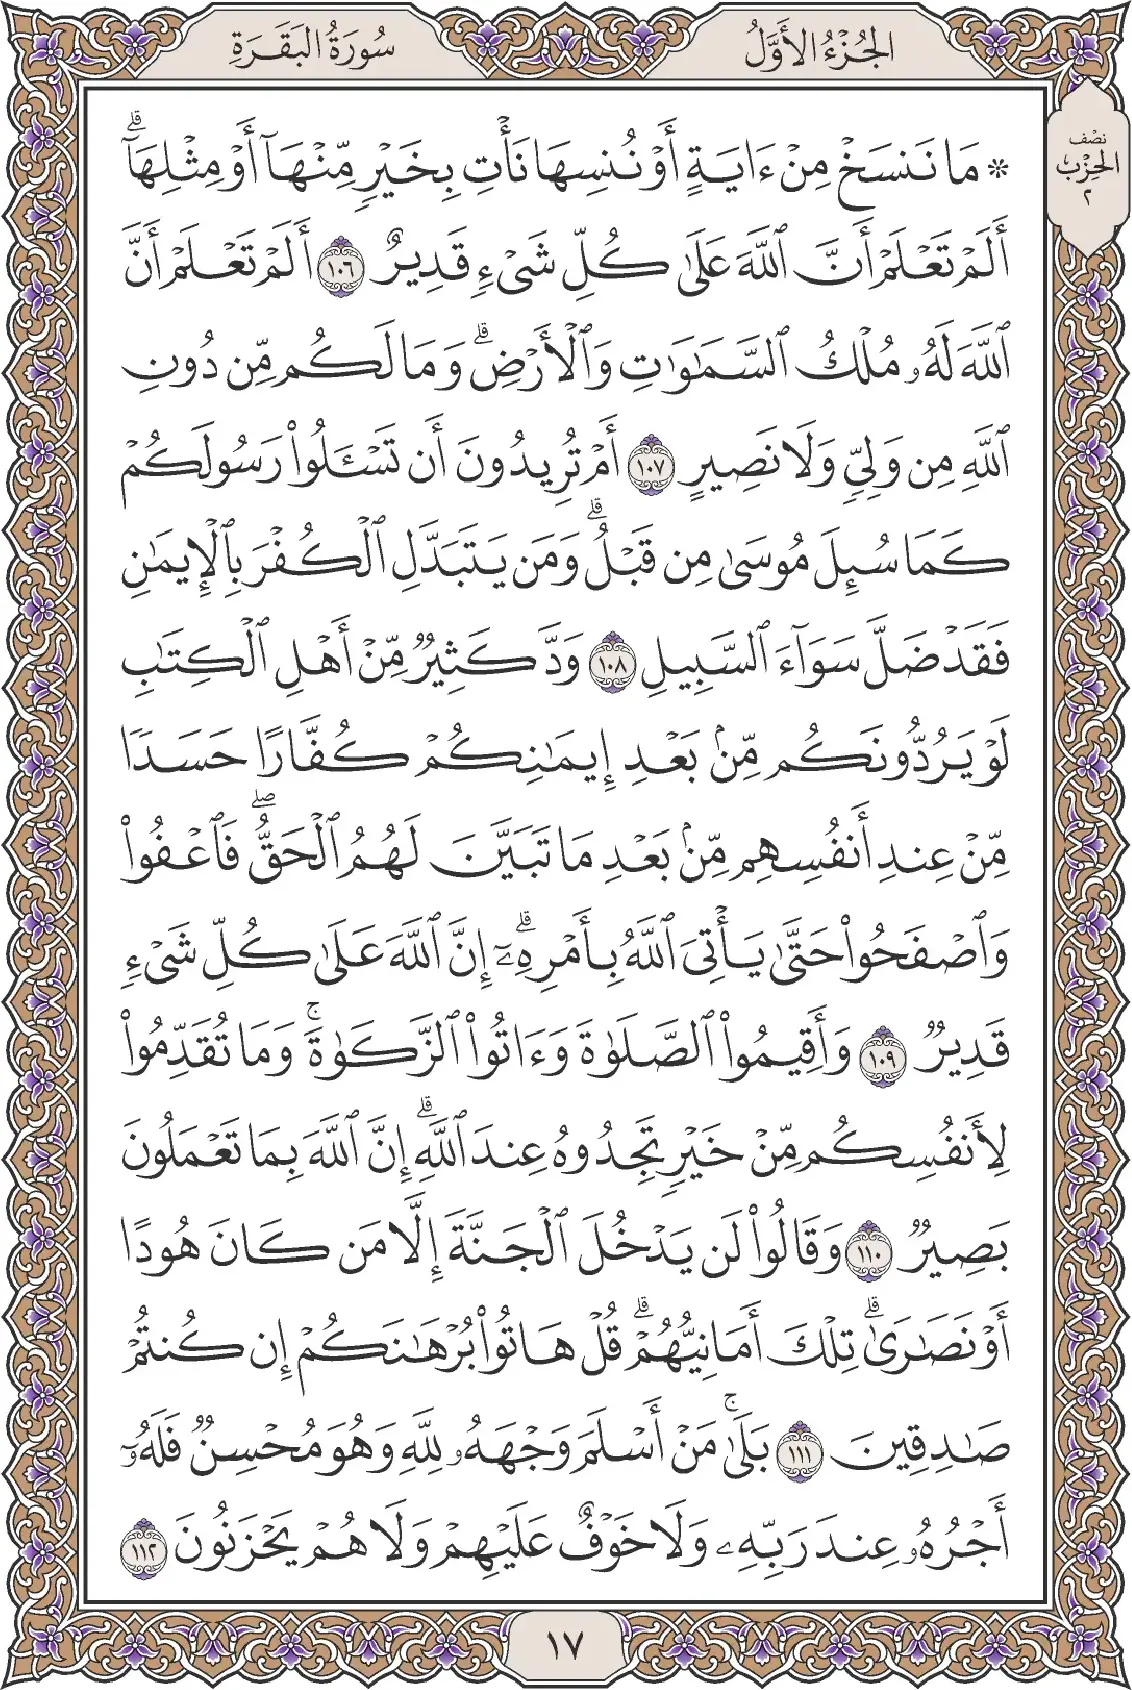 الجُزْءُ الأَوَّلُ
سُورَةُ البَقَرَةِ
نصف
الحزب
٢
* مَا نَنسَخْ مِنْ ءَايَةٍ أَوْ نُنسِهَا نَأْتِ بِخَيْرٍ مِّنْهَآ أَوْ مِثْلِهَآۗ
أَلَمْ تَعْلَمْ أَنَّ ٱللَّهَ عَلَىٰ كُلِّ شَىْءٍ قَدِيرٌ ١٠٦ أَلَمْ تَعْلَمْ أَنَّ
ٱللَّهَ لَهُۥ مُلْكُ ٱلسَّمَٰوَٰتِ وَٱلْأَرْضِۗ وَمَا لَكُم مِّن دُونِ
ٱللَّهِ مِن وَلِىٍّ وَلَا نَصِيرٍ ١٠٧ أَمْ تُرِيدُونَ أَن تَسْـَٔلُوا۟ رَسُولَكُمْ
كَمَا سُئِلَ مُوسَىٰ مِن قَبْلُۗ وَمَن يَتَبَدَّلِ ٱلْكُفْرَ بِٱلْإِيمَٰنِ
فَقَدْ ضَلَّ سَوَآءَ ٱلسَّبِيلِ ١٠٨ وَدَّ كَثِيرٌ مِّنْ أَهْلِ ٱلْكِتَٰبِ
لَوْ يَرُدُّونَكُم مِّنۢ بَعْدِ إِيمَٰنِكُمْ كُفَّارًا حَسَدًا
مِّنْ عِندِ أَنفُسِهِم مِّنۢ بَعْدِ مَا تَبَيَّنَ لَهُمُ ٱلْحَقُّۖ فَٱعْفُوا۟
وَٱصْفَحُوا۟ حَتَّىٰ يَأْتِىَ ٱللَّهُ بِأَمْرِهِۦٓۗ إِنَّ ٱللَّهَ عَلَىٰ كُلِّ شَىْءٍ
قَدِيرٌ ١٠٩ وَأَقِيمُوا۟ ٱلصَّلَوٰةَ وَءَاتُوا۟ ٱلزَّكَوٰةَۚ وَمَا تُقَدِّمُوا۟
لِأَنفُسِكُم مِّنْ خَيْرٍ تَجِدُوهُ عِندَ ٱللَّهِۗ إِنَّ ٱللَّهَ بِمَا تَعْمَلُونَ
بَصِيرٌ ١١٠ وَقَالُوا۟ لَن يَدْخُلَ ٱلْجَنَّةَ إِلَّا مَن كَانَ هُودًا
أَوْ نَصَٰرَىٰۗ تِلْكَ أَمَانِيُّهُمْۗ قُلْ هَاتُوا۟ بُرْهَٰنَكُمْ إِن كُنتُمْ
صَٰدِقِينَ ١١١ بَلَىٰۚ مَنْ أَسْلَمَ وَجْهَهُۥ لِلَّهِ وَهُوَ مُحْسِنٌ فَلَهُۥٓ
أَجْرُهُۥ عِندَ رَبِّهِۦ وَلَا خَوْفٌ عَلَيْهِمْ وَلَا هُمْ يَحْزَنُونَ ١١٢
١٧